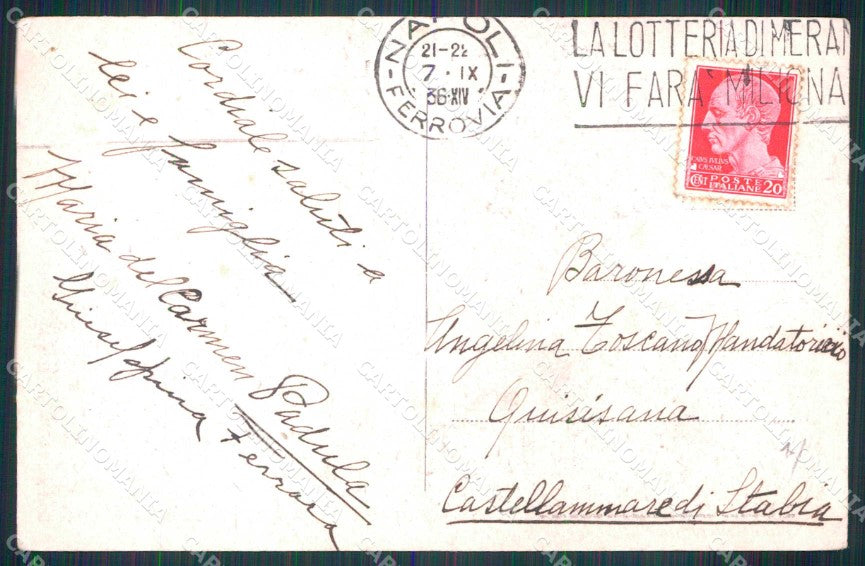 NAPOLI
21-22
7 · IX
36·XIV
FERROVIA
LA LOTTERIA DI MERAN
VI FARA' MILIONA
CAIVS IVLIVS
CAESAR
CENT POSTE 20
ITALIANE
Cordiale saluti a
lei e famiglia
Maria del Carmen Padula
Giuseppina Ferrara
Baronessa
Angelina Toscano Mandatoriccio
Quisisana
Castellammare di Stabia
CARTOLINOMANIA